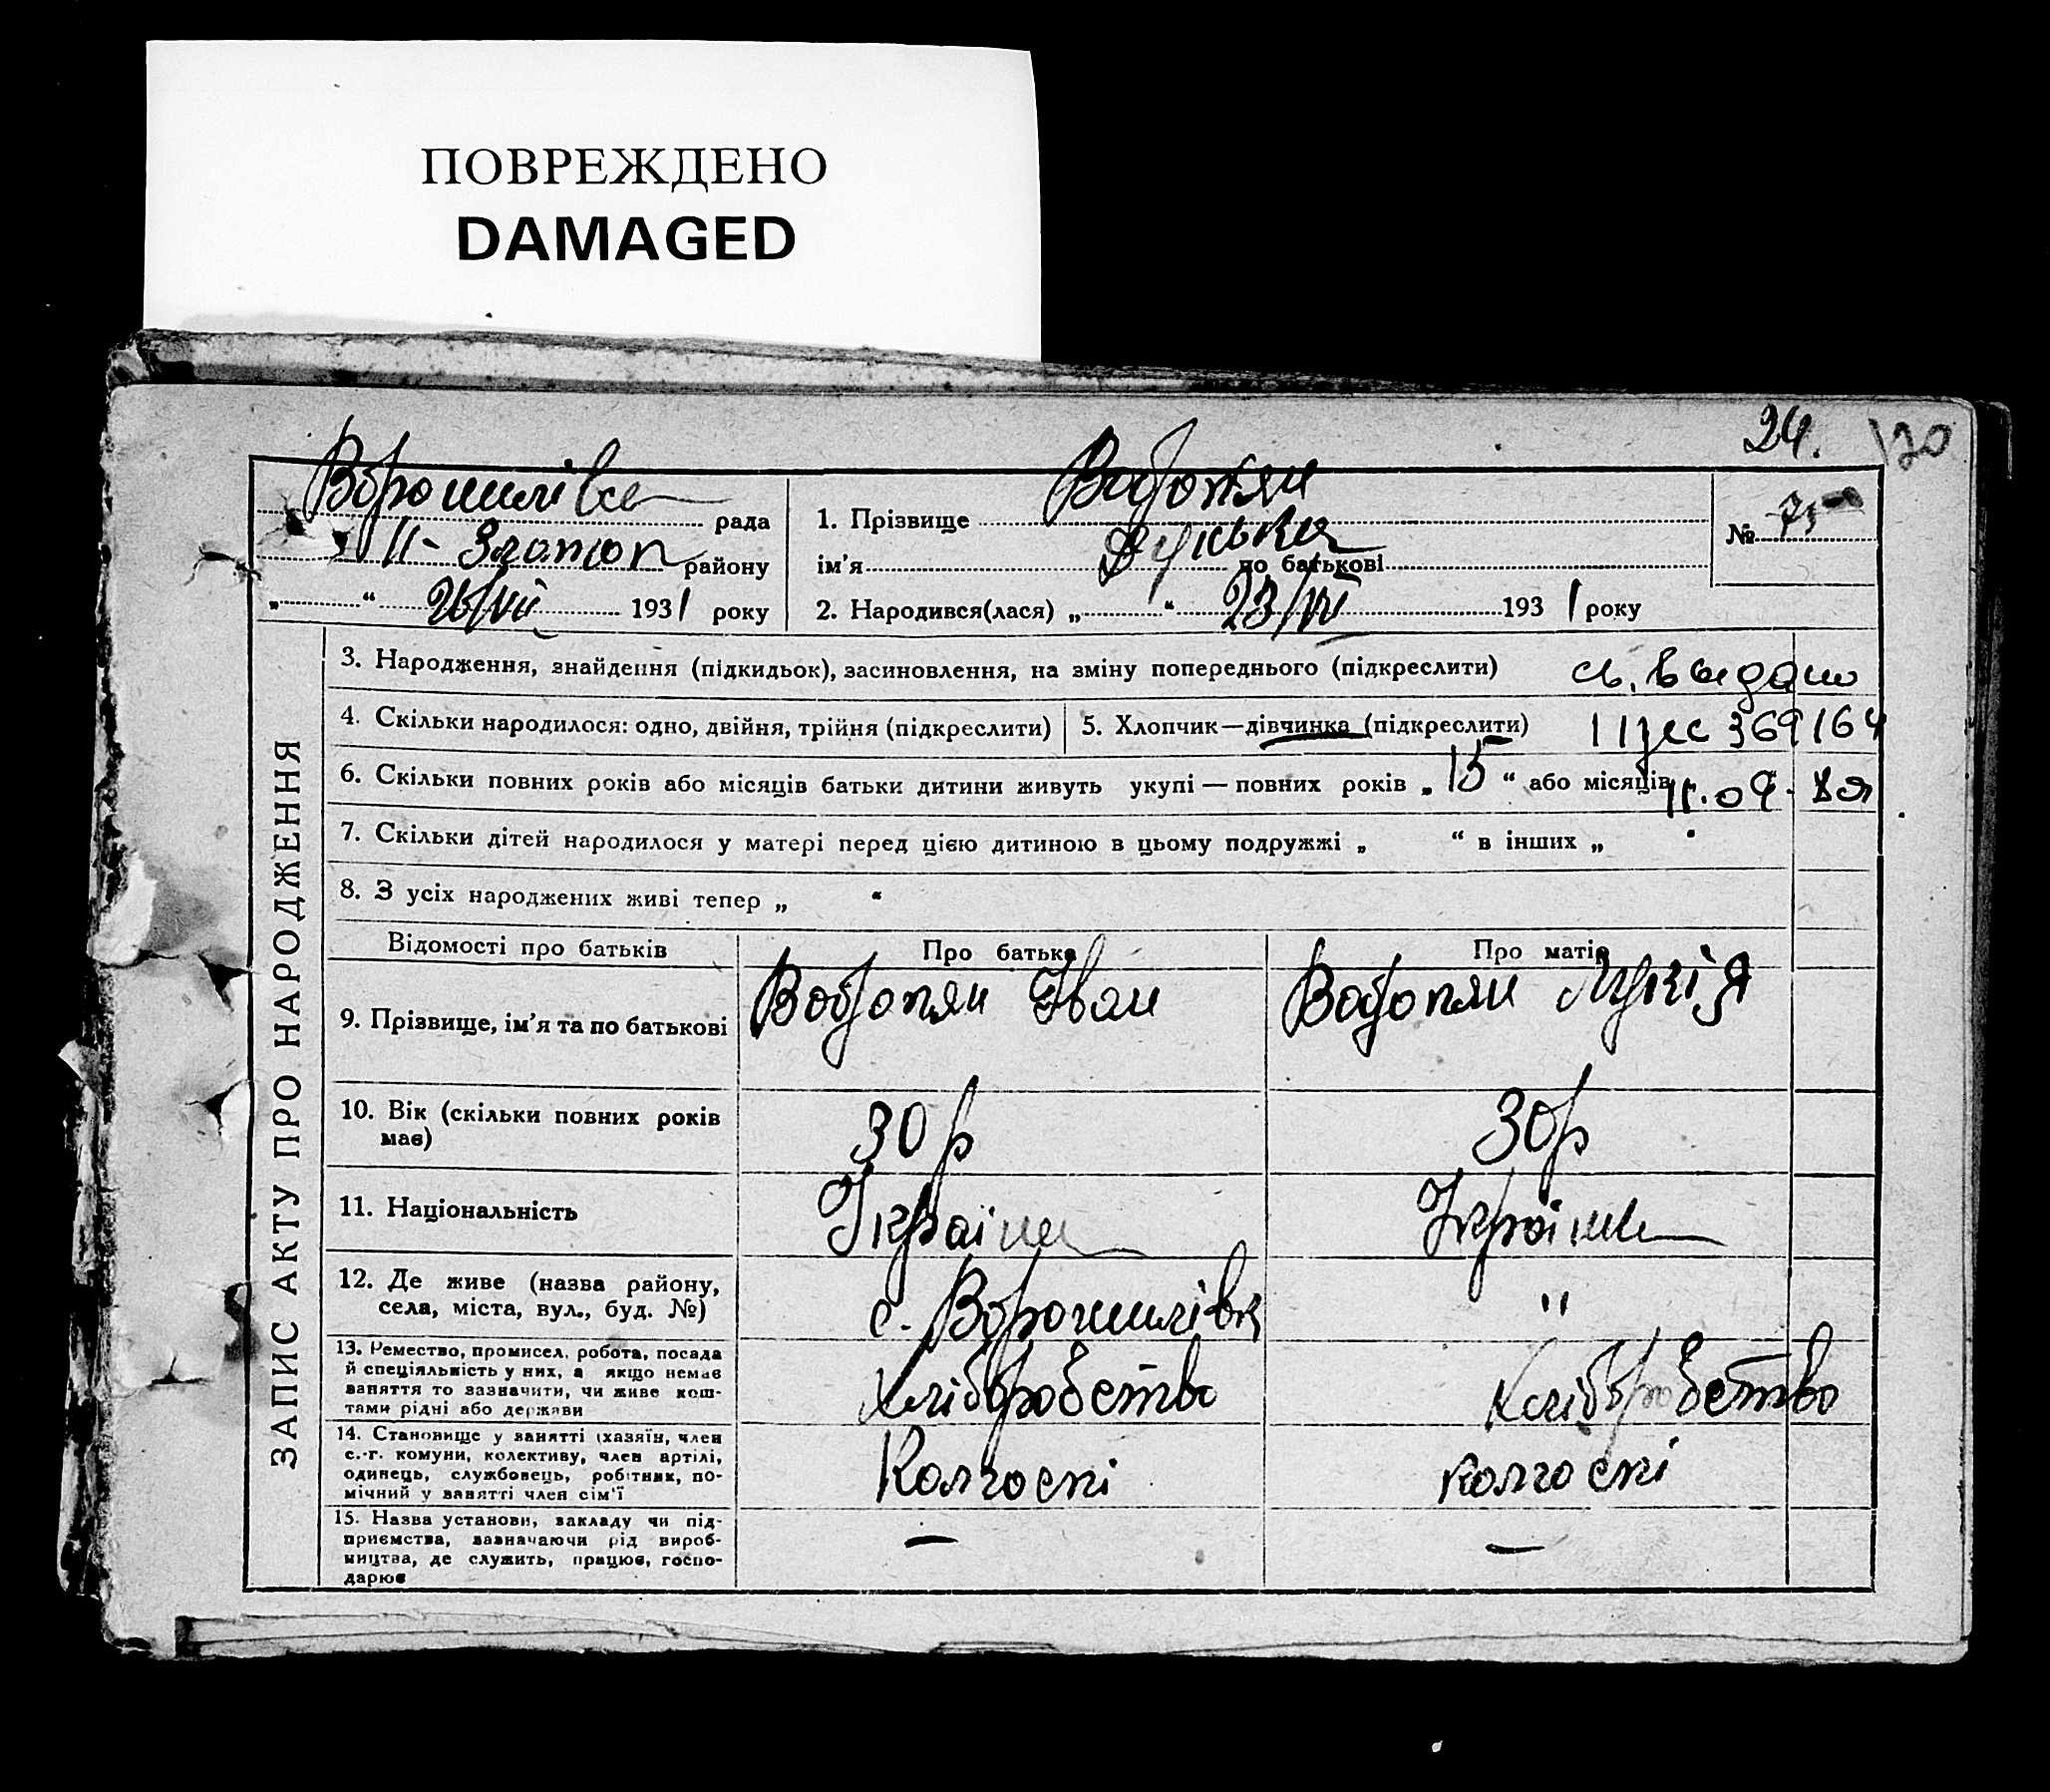 ПОВРЕЖДЕНО
DAMAGED
24. 120
Ворошилівка рада
Н-Златоп району
„ “ 26/VII 1931 року
1. Прізвище Водопян
ім’я по батькові
2. Народився(лася) „ “ 23/VII 1931 року
№ 75
ЗАПИС АКТУ ПРО НАРОДЖЕННЯ
3. Народження, знайдення (підкидьок), засиновлення, на зміну попереднього (підкреслити) св. выдано
4. Скільки народилося: одно, двійня, трійня (підкреслити) 5. Хлопчик—дівчинка (підкреслити) 369164
6. Скільки повних років або місяців батьки дитини живуть укупі — повних років „ 15 “ або місяців
7. Скільки дітей народилося у матері перед цією дитиною в цьому подружжі „ “ в інших „
8. З усіх народжених живі тепер „ “
Відомості про батьків Про батька Про матір
9. Прізвище, ім’я та по батькові Водопян Іван Водопян
10. Вік (скільки повних років має) 30 р 30 р
11. Національність Україн Україн
12. Де живе (назва району, села, міста, вул., буд. №) с. Ворошилівк "
13. Ремество, промисел, робота, посада й спеціяльність у них, а якщо немає заняття то зазначити, чи живе коштами рідні або держави Хліборобство Хліборобство
14. Становище у занятті (хазяїн, член с.-г. комуни, колективу, член артілі, одинець, службовець, робітник, помічний у занятті член сім’ї Колгоспі колгоспі
15. Назва установи, закладу чи підприємства, зазначаючи рід виробництва, де служить, працює, господарює — —